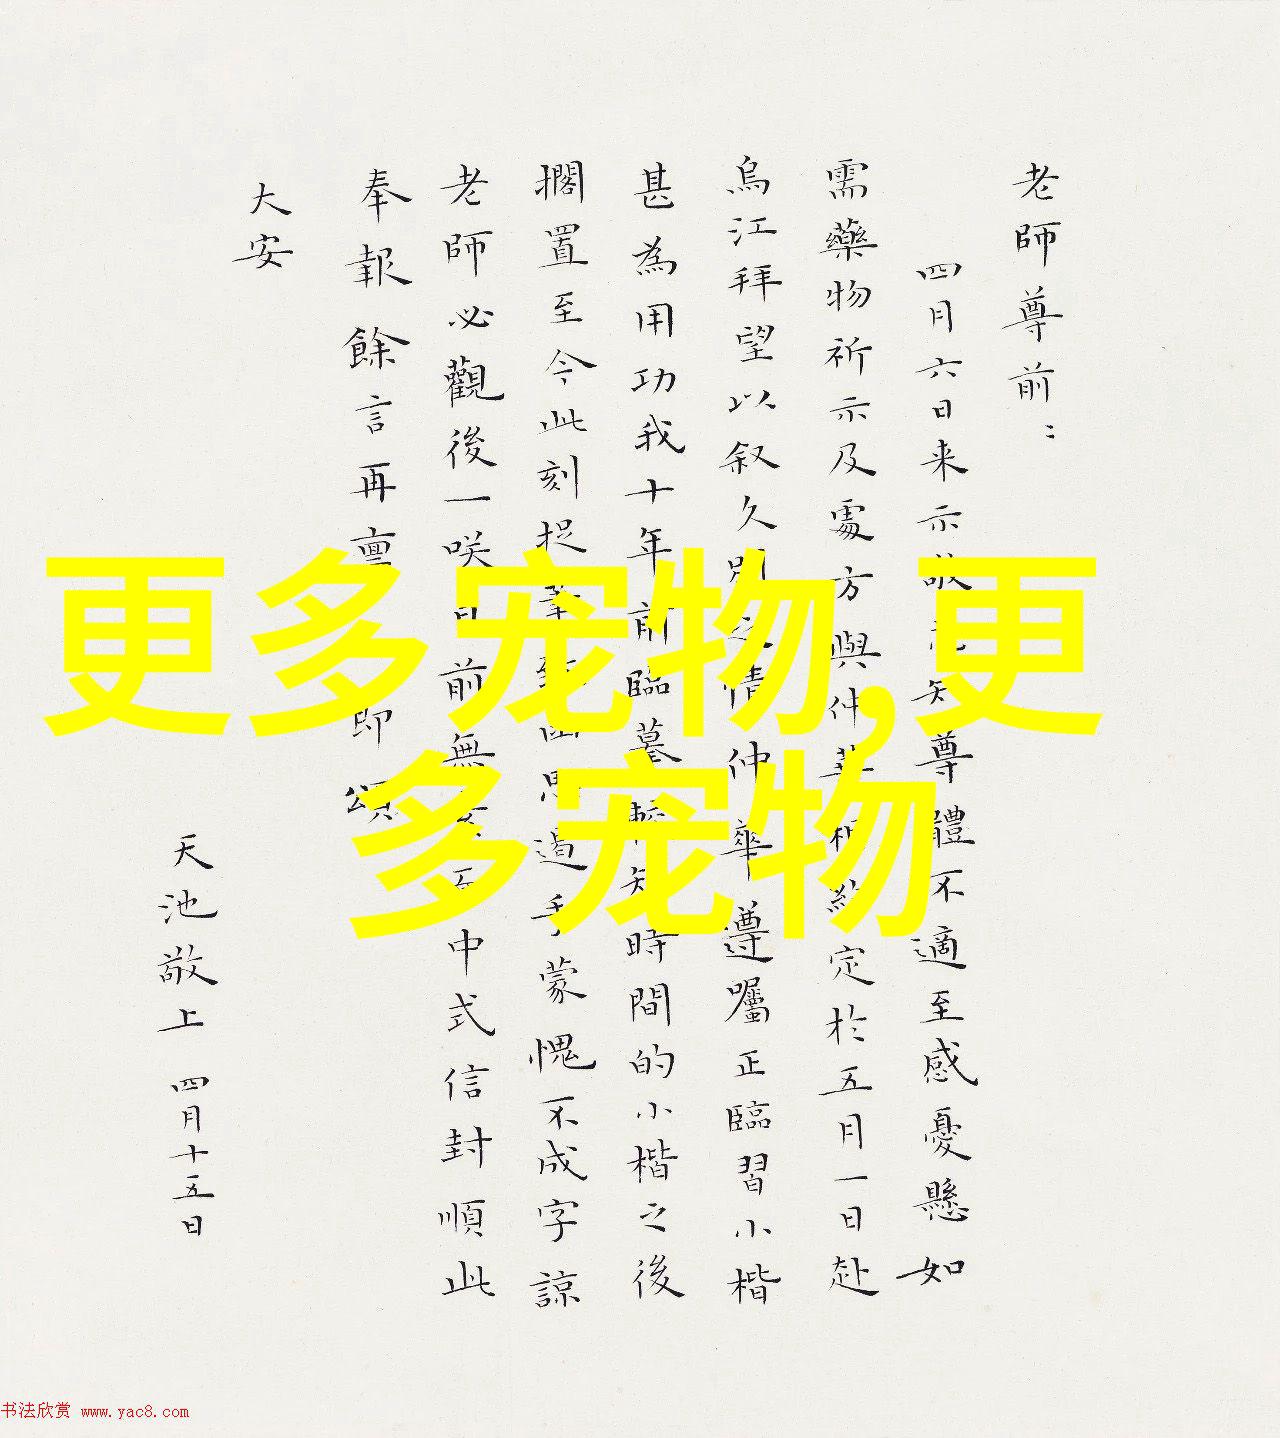 老師尊前：
四月六日来示敬知尊體不適至感憂懸如
需藥物祈示及處方與仲華相約定於五月一日赴
烏江拜望以叙久別之情仲華遵囑正臨習小楷
甚為用功我十年前臨摹暫短時間的小楷之後
擱置至今此刻捉筆思遏手蒙愧不成字諒
老師必觀後一咲目前無中式信封順此
奉報餘言再禀即頌
大安
天池敬上 四月十五日
更多宠物,更
多宠物
书法欣赏 www.yac8.com